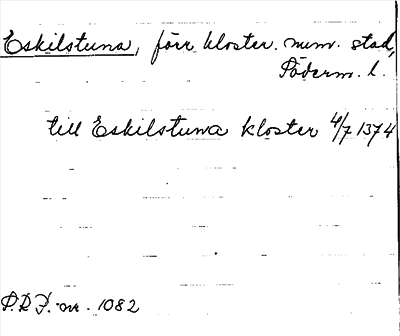 Eskilstuna, förr kloster. num. stad,
Söderm. l.
till Eskilstuna kloster 4/7 1374
P.R.F. nr. 1082